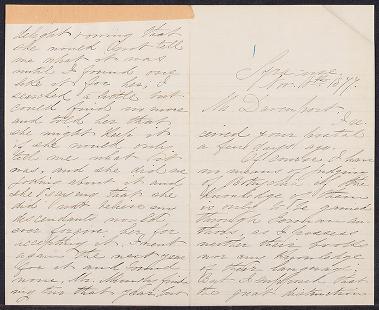 delight coming that
she would not tell
me what it was
until I found one
like it for her; I
searched a little but
could find no more
and told her that
she might keep it
if she would only
tell me what it
was, and she did me
joking about it and
she
did not believe my
descendants would
ever forgive her for
accepting it. I went
again the next year
for it and found
none. Mr. find
ing his that year, but
Syracuse
Nov. 8th 1877.
Mr Davenport
I re
ceived your postal
a few days ago.
Of course I have
no means of judging
of the
knowledge of them
is only to be gained
through European au
thors, as I possess
neither their books
nor any knowledge
of their language;
But I supposed that
the great distinction